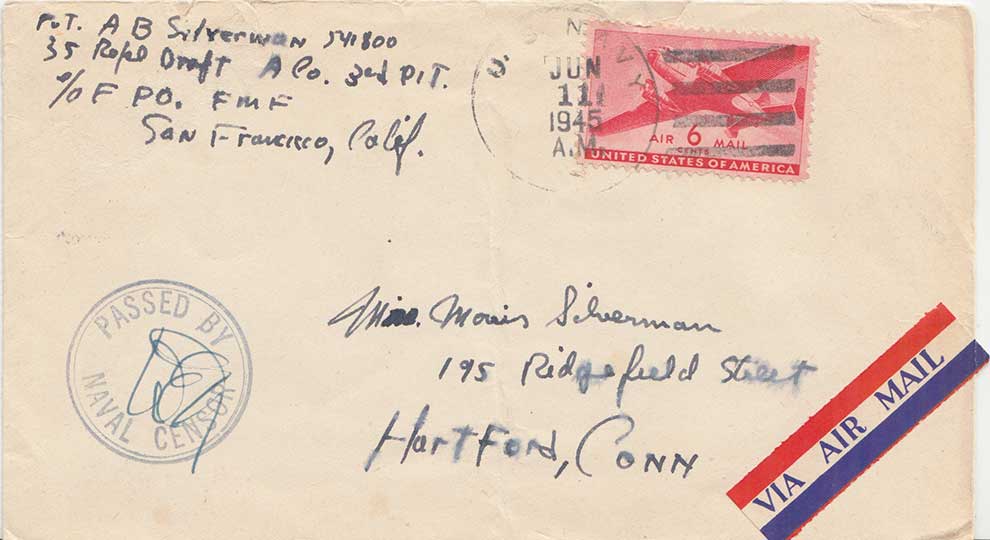 Pvt. A B Silverman 541800
35 Repl Draft A Co. 3rd Plt.
c/o F PO. FMF
San Francisco, Calif.
U.S. NAVY
JUN
11
1945
A.M.
AIR 6 MAIL
CENTS
UNITED STATES OF AMERICA
PASSED BY
NAVAL CENSOR
Mrs. Morris Silverman
195 Ridgefield Street
Hartford, Conn
VIA AIR MAIL